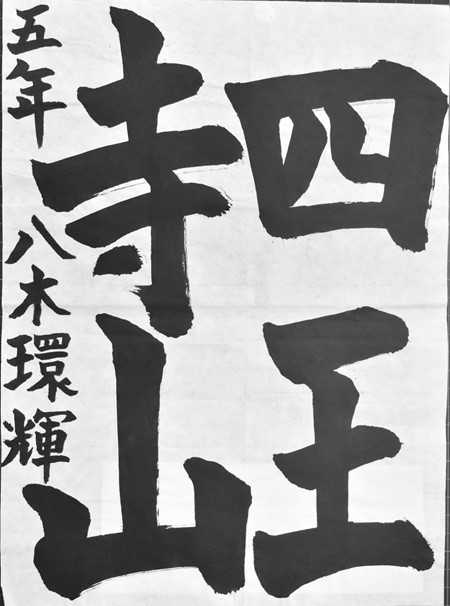 四王
寺山
五年 八木環輝